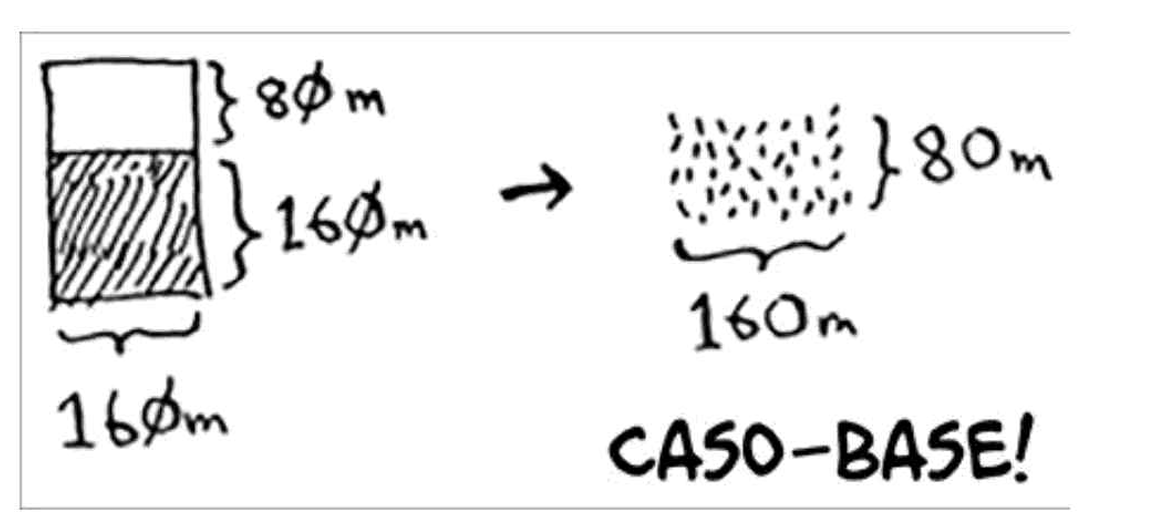 80 m
160 m
160m
80m
160m
CASO-BASE!